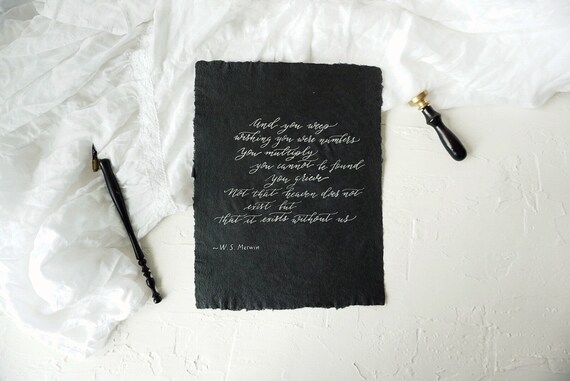 And you weep
wishing you were numbers
You multiply
you cannot be found
You grieve
Not that heaven does not
exist but
that it exists without us
—W. S. Merwin